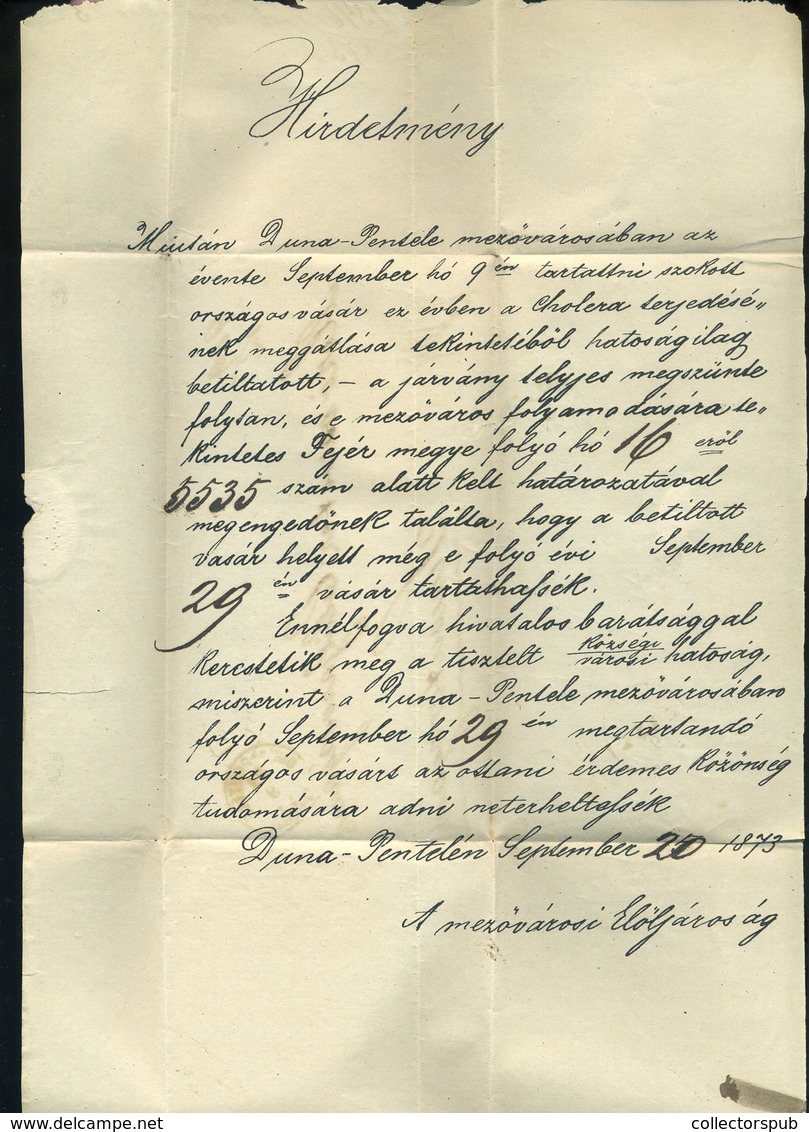 Hirdetmény
Miután Duna-Pentele mezővárosában az
évente September hó 9én tartattni szokott
országos vásár ez évben a Cholera terjedésé„
nek meggátlása tekintetéből hatoságilag
betiltatott, – a járvány telyjes megszünte
folytan, és e mezőváros folyamodására te„
kintetes Fejér megye folyó hó 16 eröl
5535 szám alatt kelt határozatával
megengedőnek találta, hogy a betiltott
vasár helyett még e folyó évi September
29 én vásár tartathassék.
Ennélfogva hivatalos barátsággal
kerestetik meg a tisztelt községi városi hatoság,
miszerint a Duna-Pentele mezővárosában
folyó September hó 29 én megtartandó
országos vásárt az ottani érdemes közönség
tudomására adni neterheltessék
Duna-Pentelén September 20 1873
A mezővárosi Elöljároság
delcampe.net
collectorspub